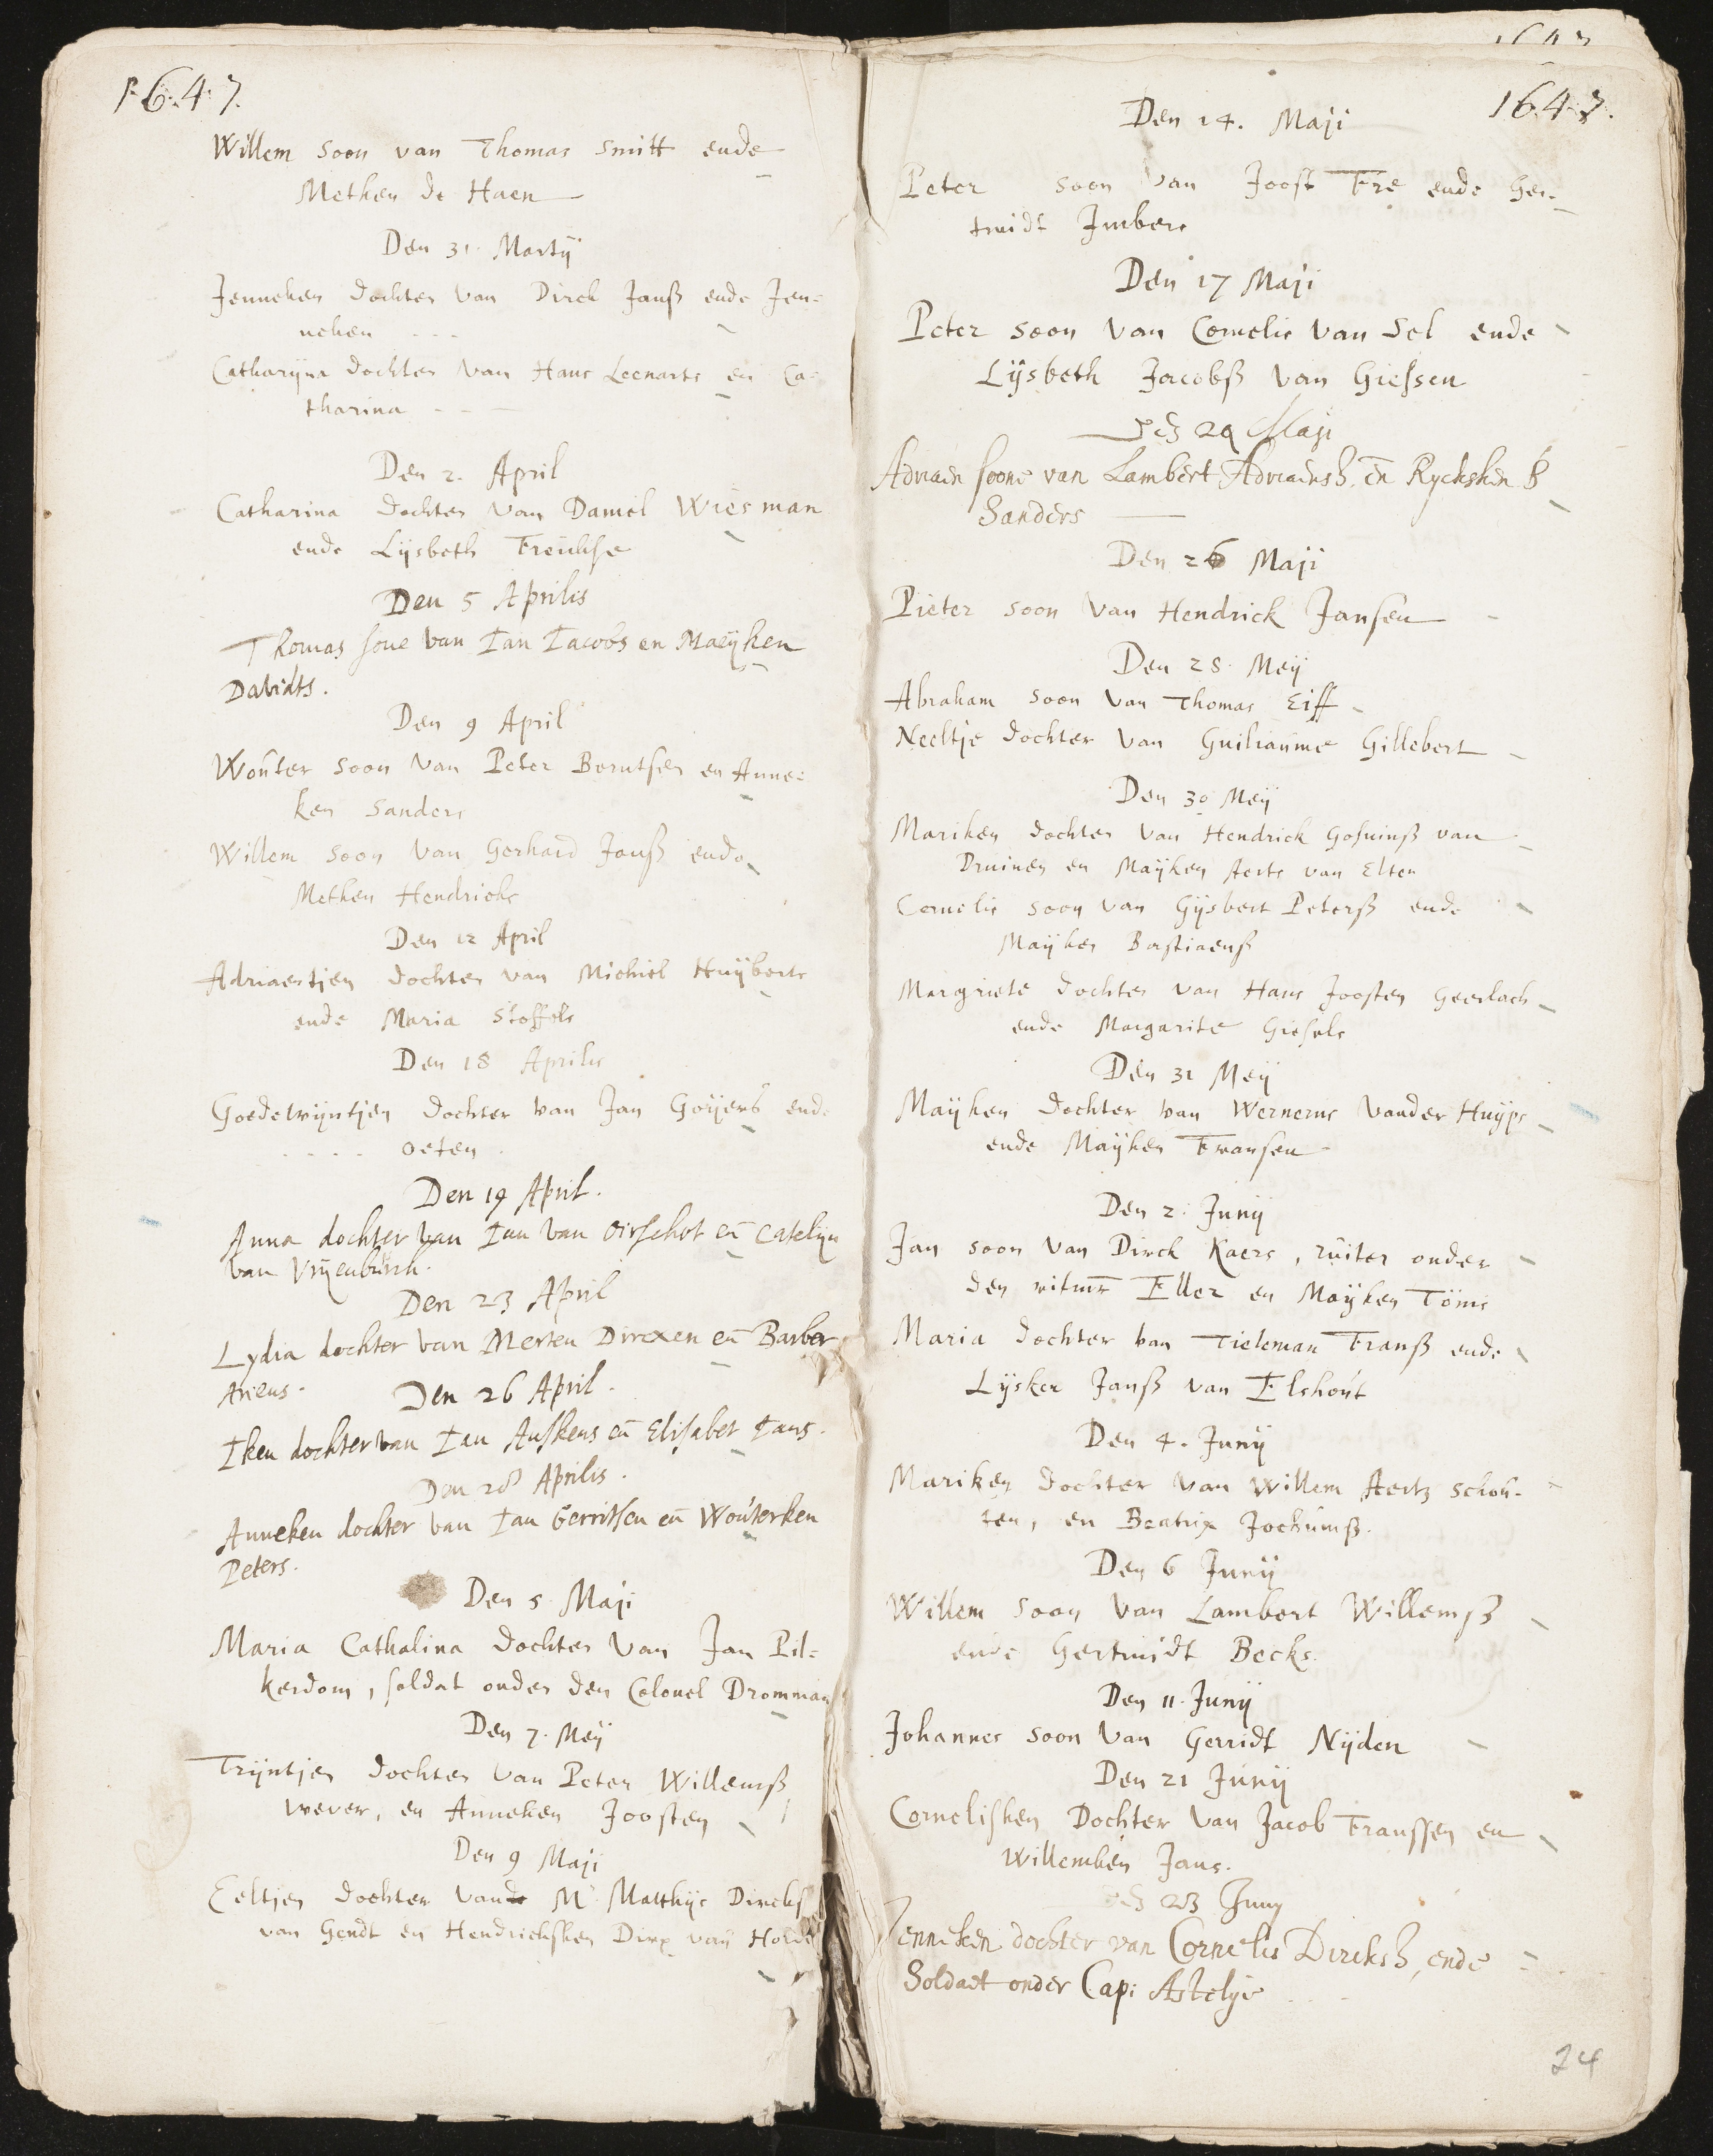 1647.
Willem soon van Thomas Smitt ende
Methen de Haen
Den 31. Martij
Jenneken dochter van Dirck Janß ende Jen-
neken ...
Catharijna dochter van Hans Leenarts en Ca-
tharina - - -
Den 2. April
Catharina dochter van Daniel Wiesman
ende Lijsbeth
Den 5 Aprilis
Thomas sone van Ian Iacobs en Maeijken
Davidts.
Den 9 April
Wouter soon van Peter Berntsen en Anne-
ken Sanders
Willem soon van Gerhard Janß ende
Methen Hendricks
Den 12 April
Adriaentjen dochter van Michiel Huijberts
ende Maria Stoffels
Den 18 Aprilis
Goedewijntjen dochter van Jan Goijers ende
.... oeten.
Den 19 April.
Anna dochter van Ian van Oirschot en Catelijn
van Vrijenburch.
Den 23 April
Lydia dochter van Merten Dircxen en Barber
Ariens.
Den 26 April.
Iken dochter van Ian Auskens en Elisabet Ians.
Den 28 Aprilis.
Anneken dochter van Ian Gerritsen en Wouterken
Peters.
Den 5. Maji
Maria Cathalina dochter van Jan Pil-
kerdom, soldat onder den Colonel Dromman
Den 7. Meij
Trijntjen dochter van Peter Willemß
wever, en Anneken Joosten
Den 9 Maji
Eeltjen dochter van de Mr. Matthijs Dircks
van Gendt en Hendricksken Dirx van
1647.
Den 14. Maji
Peter soon van Joost Fre ende Ger-
truidt Imbers
Den 17 Maji
Peter soon van Cornelis van Sel ende
Lijsbeth Jacobß van Giessen
den 20 Maji
Adriaen soone van Lambert Adriaensz. en Ryckskin
Sanders
Den 26 Maji
Pieter soon van Hendrick Jansen
Den 28. Meij
Abraham soon van Thomas Eiff
Neeltje dochter van Guiliaume Gillebert
Den 30 Meij
Mariken dochter van Hendrick Gosuinß van
Druinen en Maijken Aerts van Elten
Cornelis soon van Gijsbert Peterß ende
Maijken Bastiaenß
Margriete dochter van Hans Joosten Geerlach
ende Margarite Giesels
Den 31 Meij
Maijken dochter van Wernerus vander Huijps
ende Maijken Fransen
Den 2. Junij
Jan soon van Dirck Kaers, ruiter onder
den ritmr Eller en Maijken Töms
Maria dochter van Tieleman Franß ende
Lijsken Janß van Elshout
Den 4. Junij
Mariken dochter van Willem Aertz Schou-
ten, en Beatrix Jochumß.
Den 6 Junij
Willem soon van Lambert Willemß
ende Gertruidt Becks.
Den 11. Junij
Johannes soon van Gerridt Nijden
Den 21 Junij
Cornelisken Dochter van Jacob Franssen en
Willemken Jans.
den 23 Junij
Jenneken dochter van Cornelis Dircksz, ende
Soldaet onder Capi: Astelije ...
24